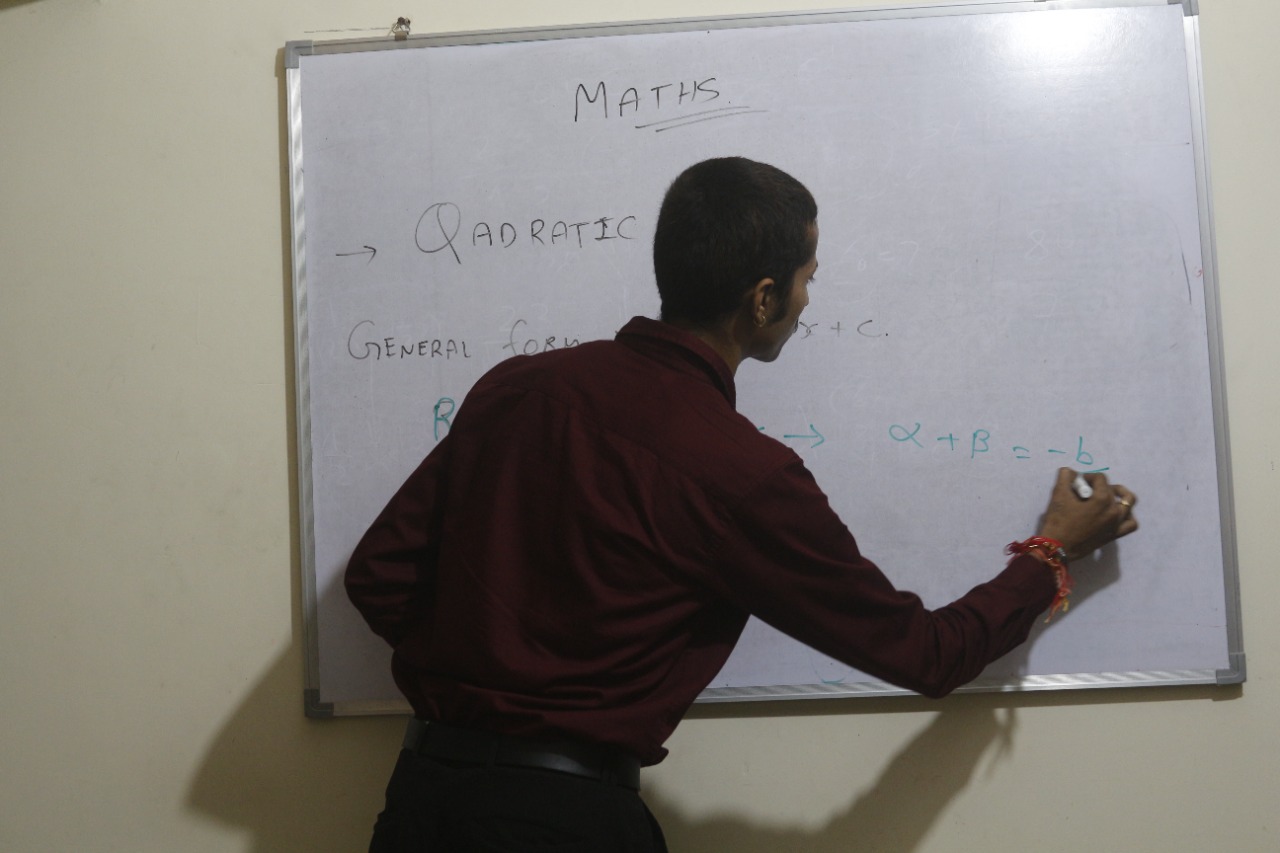 MATHS.
→ QADRATIC
GENERAL form x + c.
R → α + β = -b